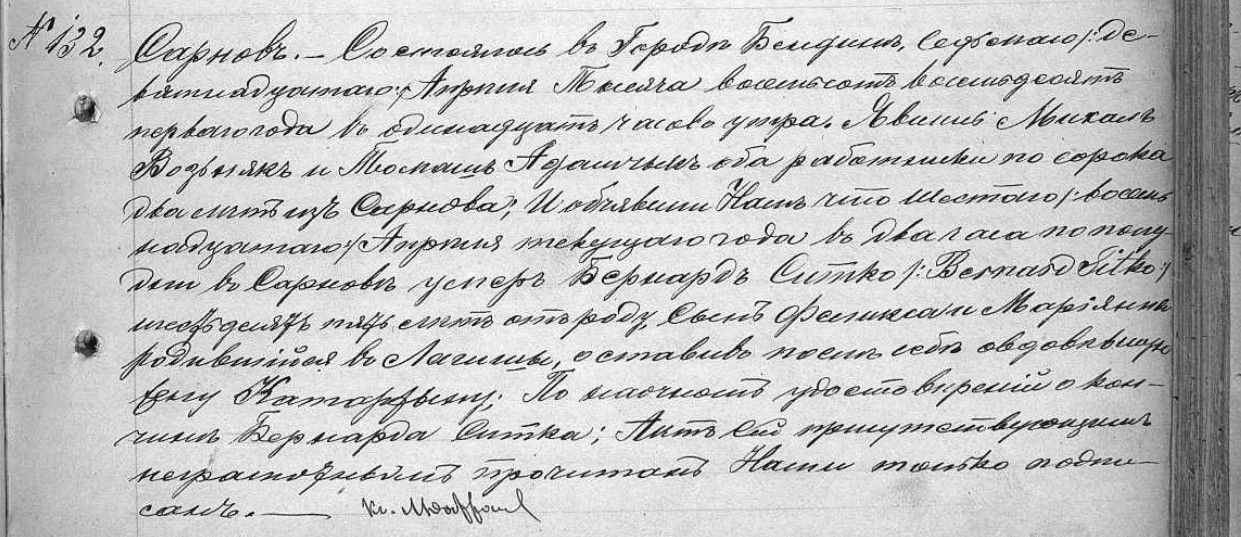 № 132.
Сарновъ. — Состоялось въ Городѣ Бендинѣ, Седьмаго /: де-
вятнадцатаго :/ Апрѣля Тысяча восемьсотъ восемьдесятъ
перваго года въ одинадцать часовъ утра. Явились Михалъ
Возьнякъ и Томашъ Адамчикъ оба работники по сорока
два лѣтъ изъ Сарнова; И объявили Намъ что шестаго /: восем
надцатаго :/ Апрѣля текущаго года въ два часа по полу-
дни въ Сарновѣ умеръ Бернардъ Ситко /: Bernard Sitko :/
шестьдесятъ пять лѣтъ отъ роду, сынъ Феликса и Маріянны
родившійся въ Лагишы, оставивъ послѣ себя овдовѣвшую
жену Катаржыну; По наочномъ удостовѣреніи о кон-
чинѣ Бернарда Ситка; Актъ сей присутствующимъ
неграмотнымъ прочитанъ Нами только подпи-
санъ. —